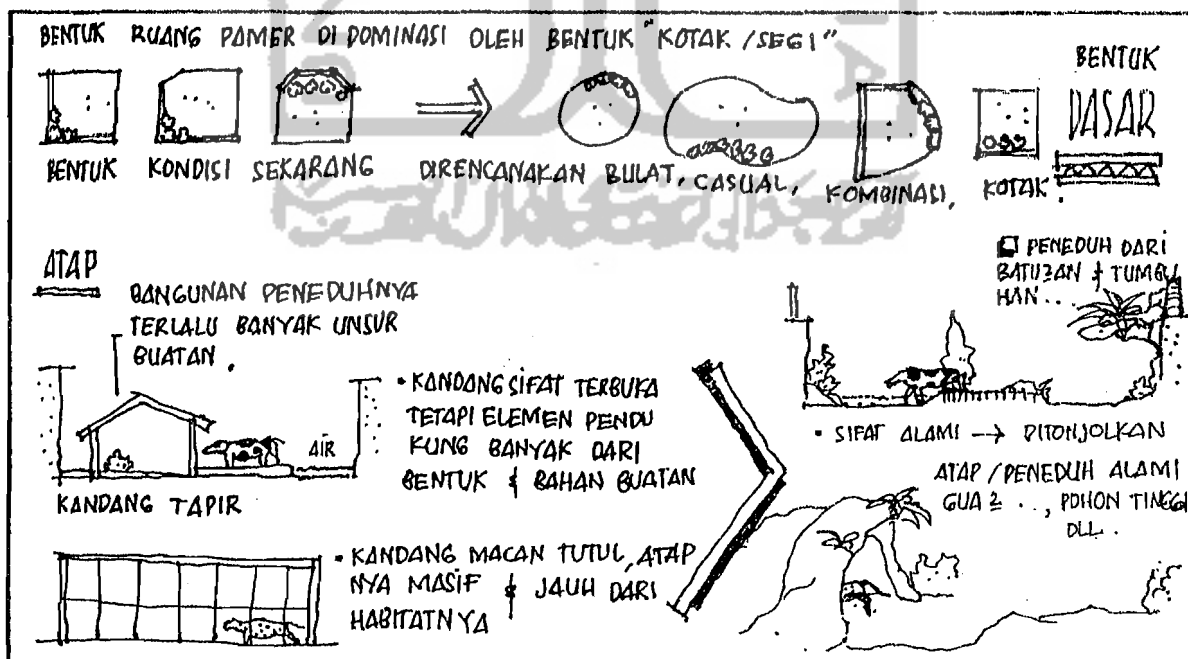 BENTUK RUANG PAMER DI DOMINASI OLEH BENTUK "KOTAK/SEGI"
BENTUK KONDISI SEKARANG
DIRENCANAKAN BULAT, CASUAL, KOMBINASI, KOTAK.
BENTUK
DASAR
ATAP
BANGUNAN PENEDUHNYA
TERLALU BANYAK UNSUR
BUATAN.
AIR
KANDANG TAPIR
• KANDANG SIFAT TERBUKA
TETAPI ELEMEN PENDU
KUNG BANYAK DARI
BENTUK & BAHAN BUATAN
• KANDANG MACAN TUTUL, ATAP
NYA MASIF & JAUH DARI
HABITATNYA
PENEDUH DARI
BATU2AN & TUMBU
HAN...
• SIFAT ALAMI → DITONJOLKAN
ATAP/PENEDUH ALAMI
GUA2..., POHON TINGGI
DLL.